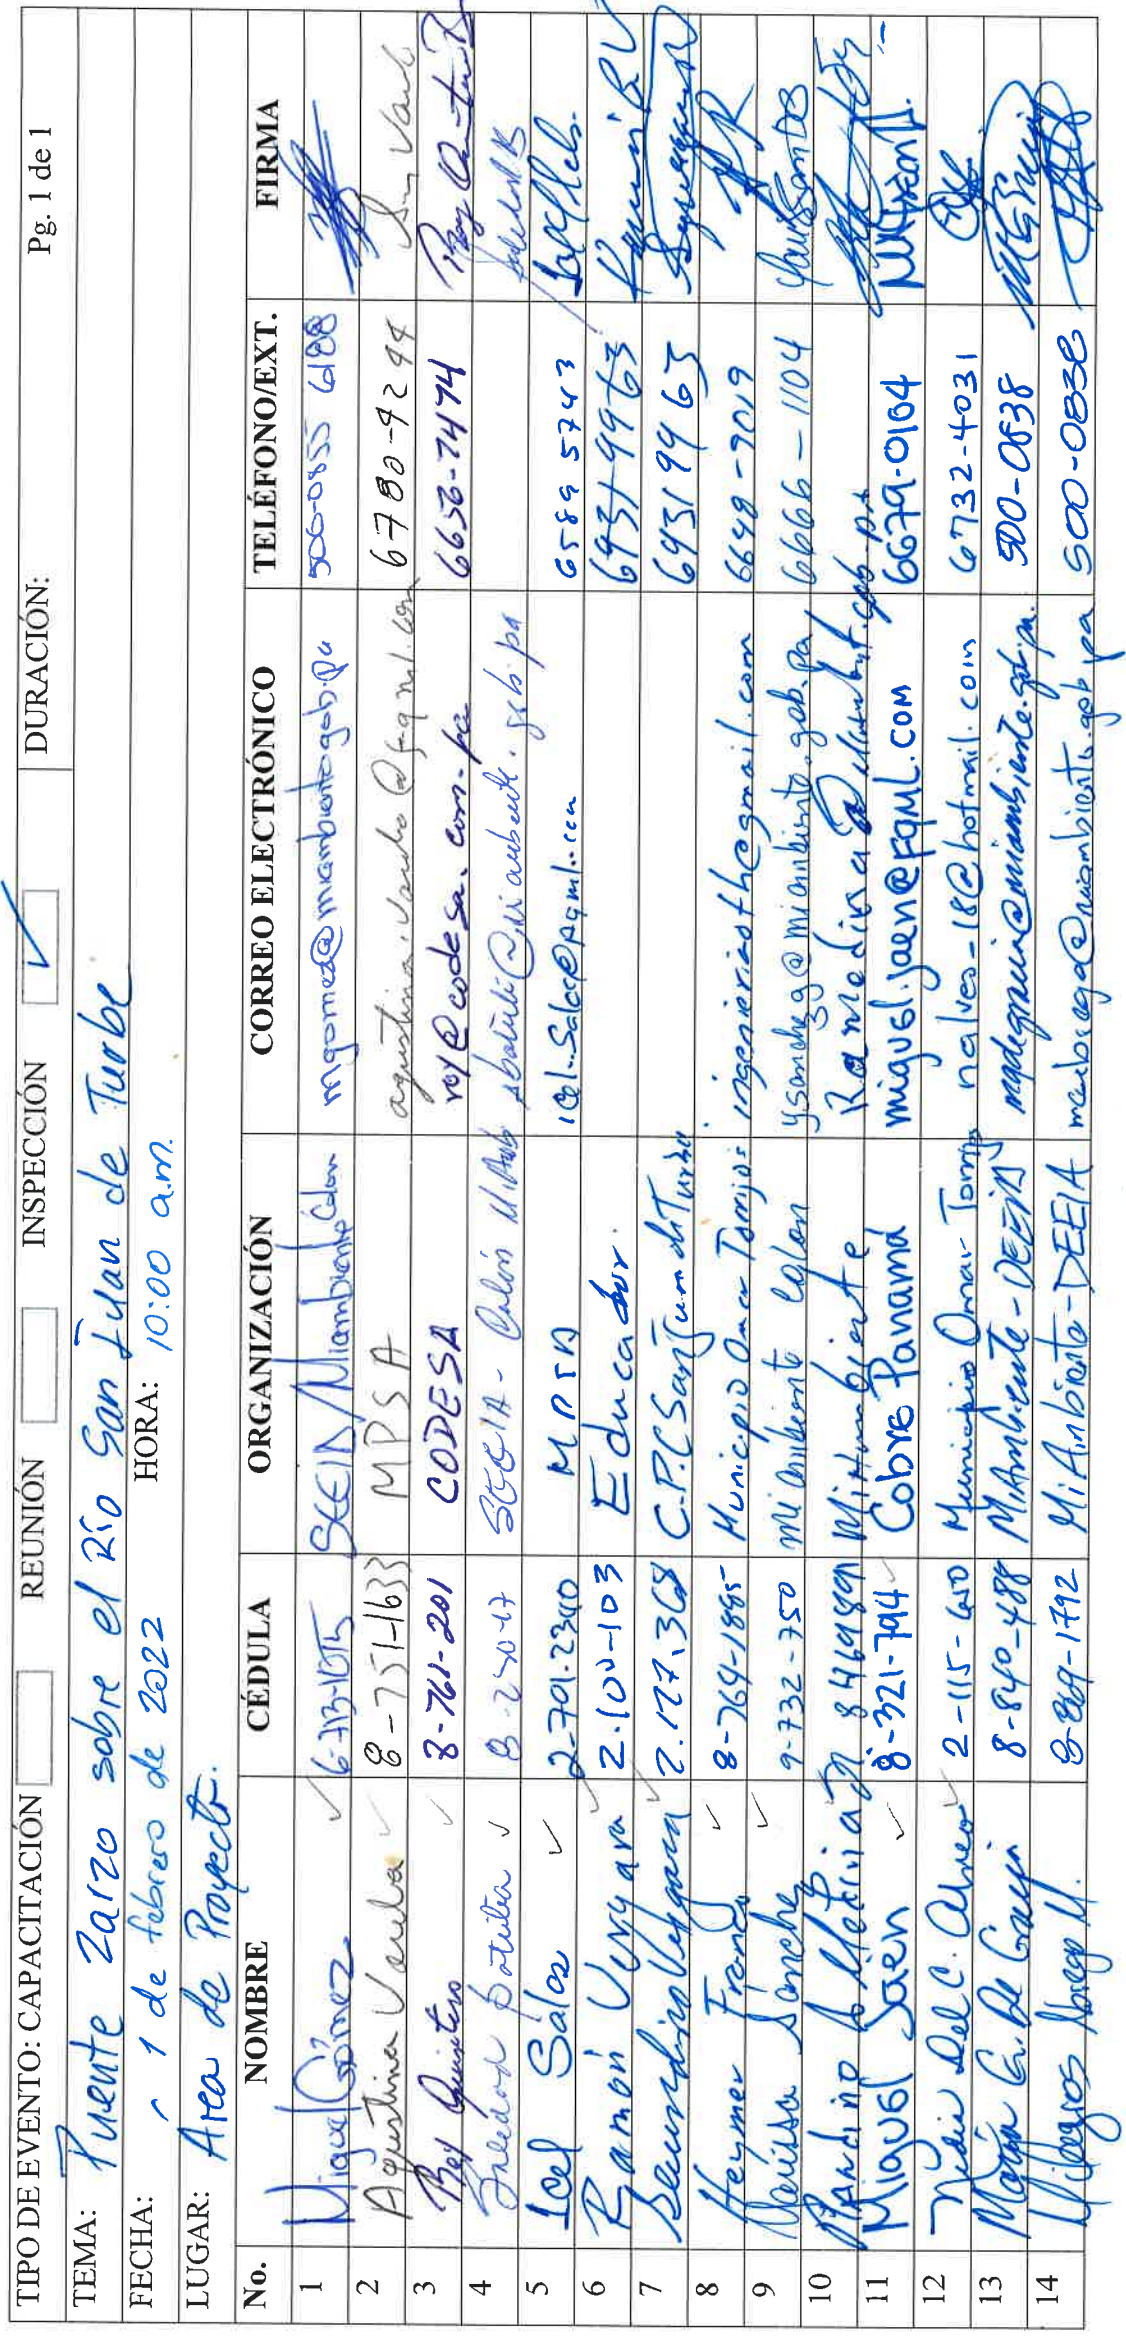 TIPO DE EVENTO: CAPACITACIÓN REUNIÓN INSPECCIÓN ✓ DURACIÓN: Pg. 1 de 1
TEMA: Puente Zarzo sobre el Río San Juan de Turbe
FECHA: 1 de febrero de 2022 HORA: 10:00 a.m.
LUGAR: Area de Proyecto.
No. NOMBRE CÉDULA ORGANIZACIÓN CORREO ELECTRÓNICO TELÉFONO/EXT. FIRMA
1 Miguel Gómez SEEIA/Miambiente Colon mgomez@miambiente.gob.pa 500-0855 6188
2 Agustina Varela 8-751-1633 MPSA agustina.varela@fqml.com 6780-9244
3 Roy Quintero 8-761-201 CODESA roy@codesa.com.pa 6656-7474
4 Colón
5 Icel Salas 2-701-2340 MPSA icel.salas@fqml.com 6589 5743
6 Ramón Vergara 2-100-103 Educador. 6931-9963
7 Secundino Vergara 2.127.368 C.P.C San Juan de Turbe. 69319963
8 Heymer Franco 8-764-1885 Municipio Omar Torrijos ingenieriasth@gmail.com 6649-7019
9 Yarissa Sánchez 9-732-750 mi ambiente colon ysanchez@miambiente.gob.pa 6666-1104
10 Medina MiAmbiente
11 Miguel Jaén 8-321-794 Cobre Panamá miguel.jaen@FQML.COM 6679-0104
12 Nidia Del C. 2-115-650 Municipio Omar Torrijos nalveo-18@hotmail.com 6732-4031
13 María G. De Gracia 8-840-488 MiAmbiente-DEEIA madegracia@miambiente.gob.pa. 500-0838
14 Milagros Abrego M. 8-869-1792 MiAmbiente-DEEIA 500-0838